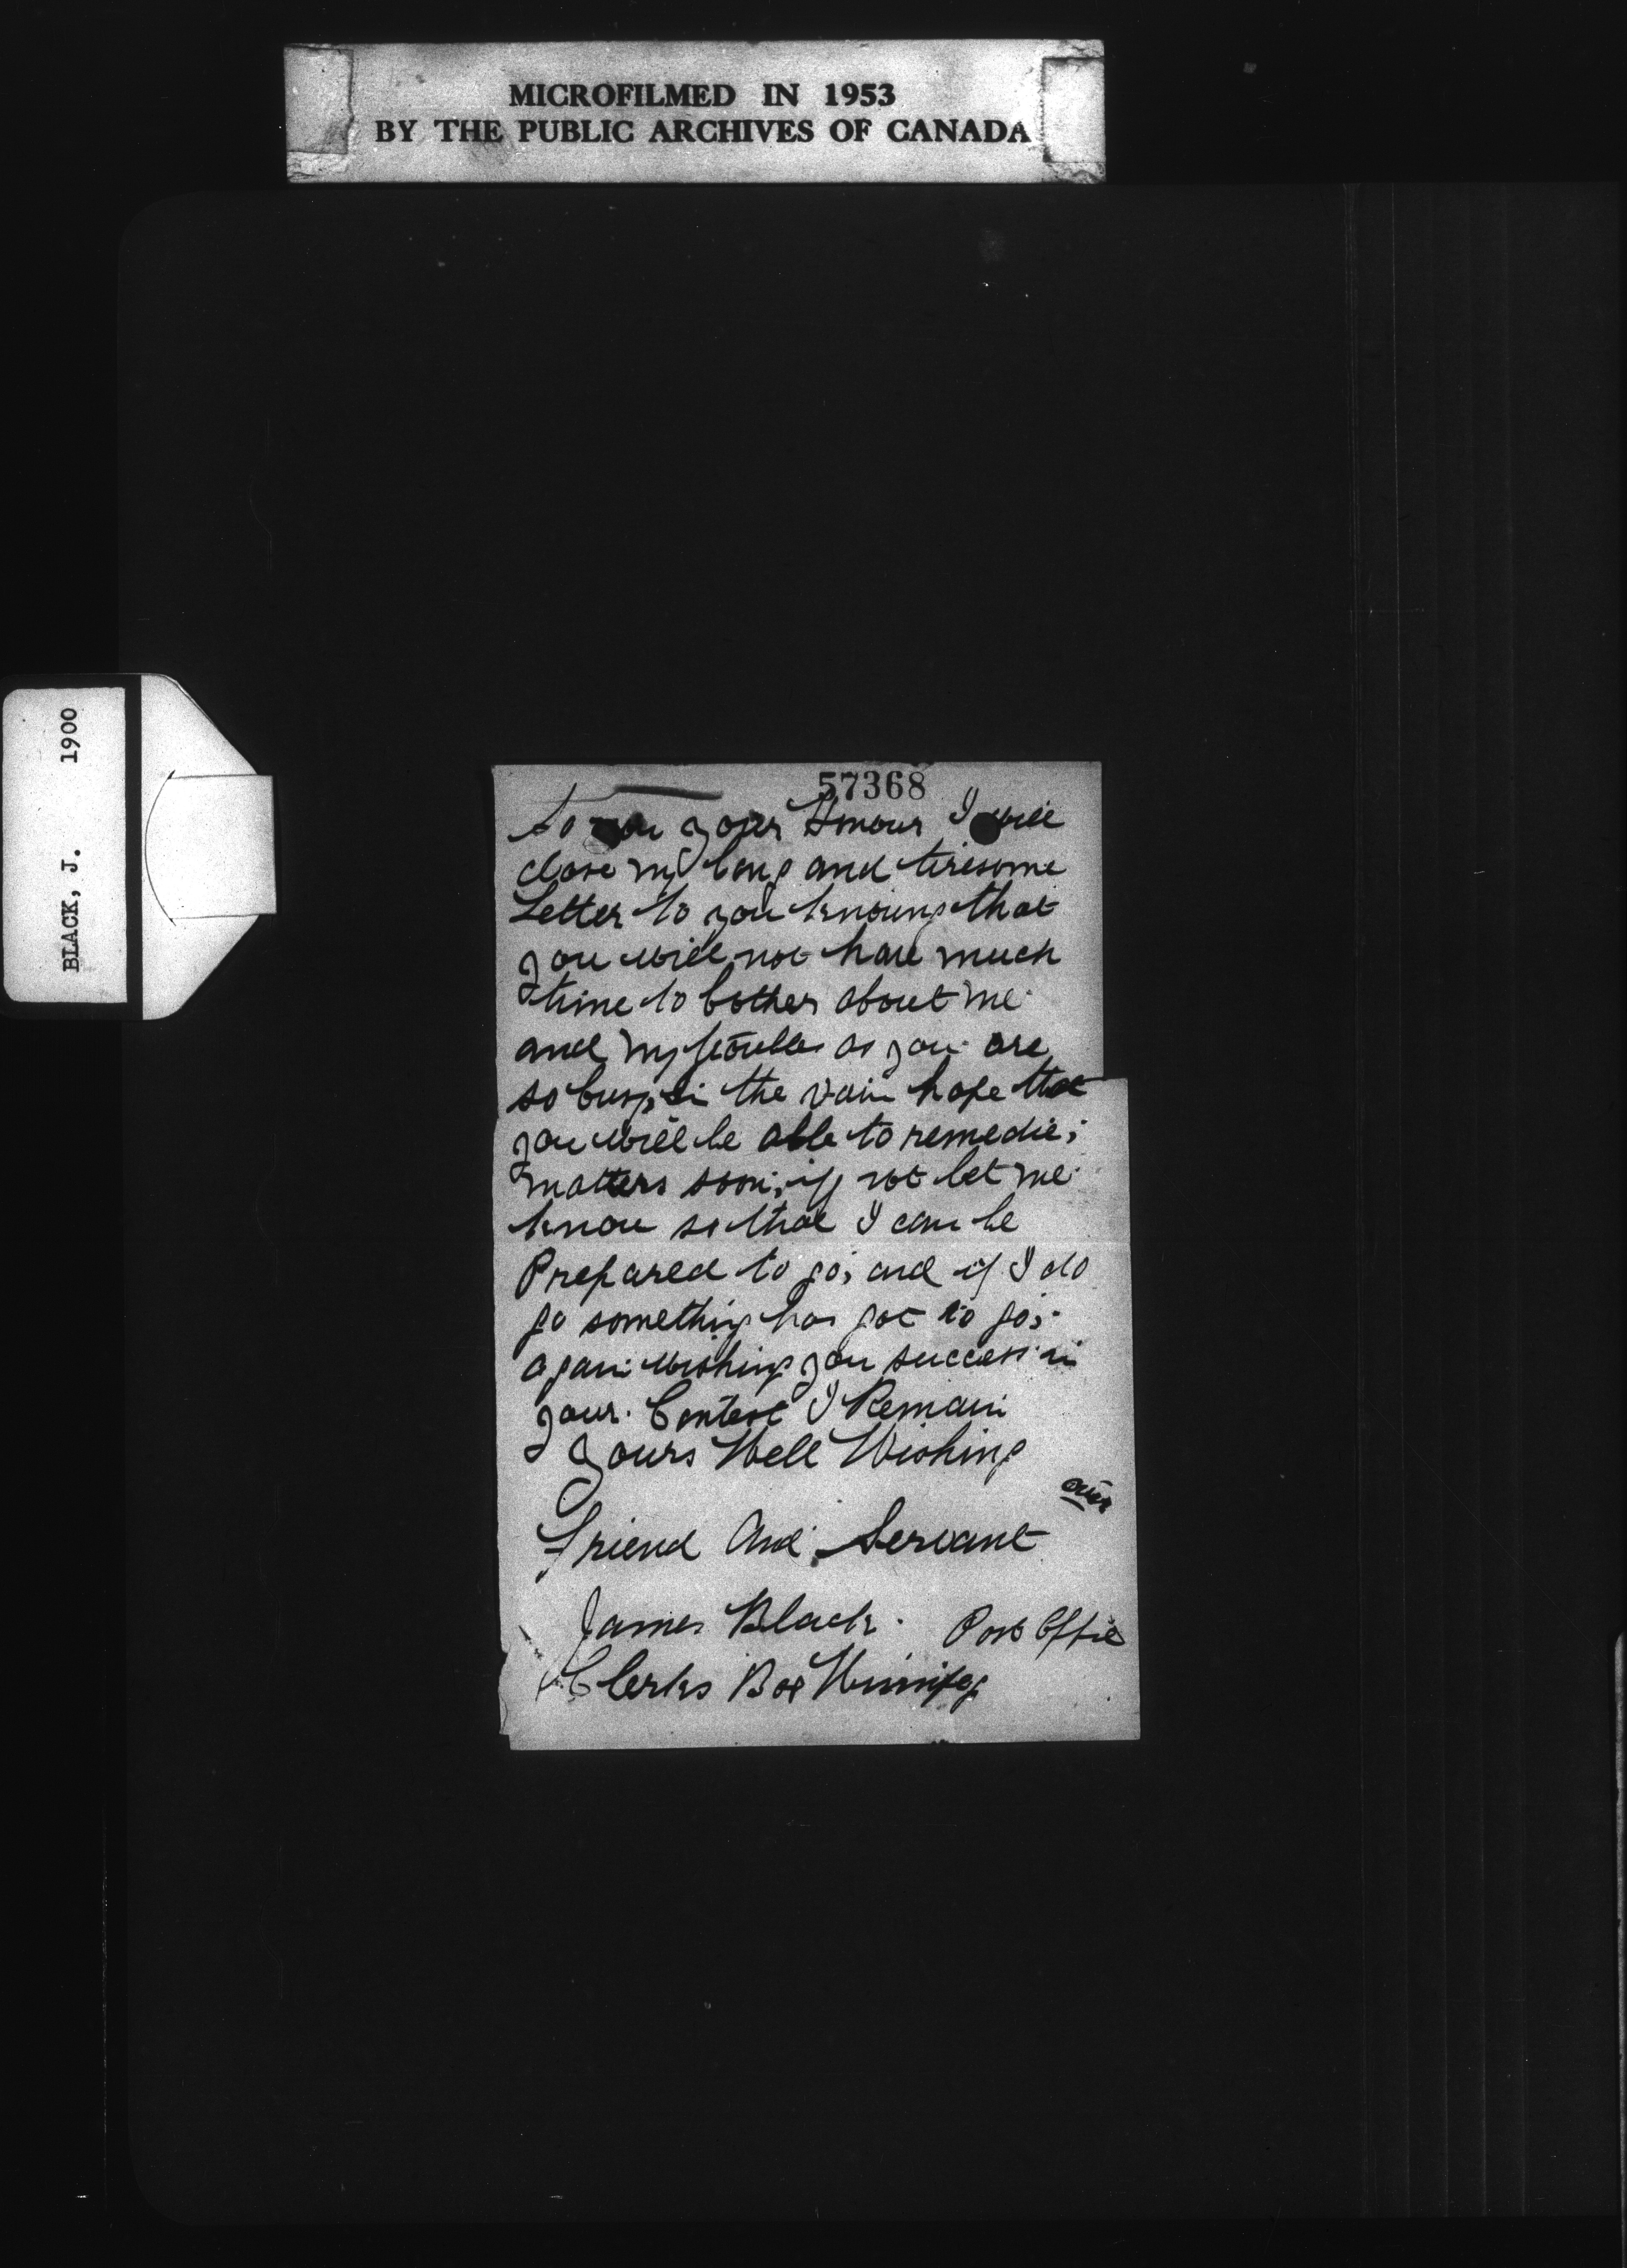 MICROFILMED IN 1953
BY THE PUBLIC ARCHIVES OF CANADA
BLACK, J. 1900
57368
to you your Honour I will
close my long and tiresome
Letter to you knowing that
you will not have much
time to bother about me
and my troubles as you are
so busy, in the vain hope that
you will be able to remedie;
matters soon, if not let me
know so that I can be
Prepared to go; and if I do
go something has got to go;
again wishing you success in
your Contest I Remain
Yours Well Wishing
over
Friend and Servant
James Black. Post Offie
Clerks Box Winnipeg